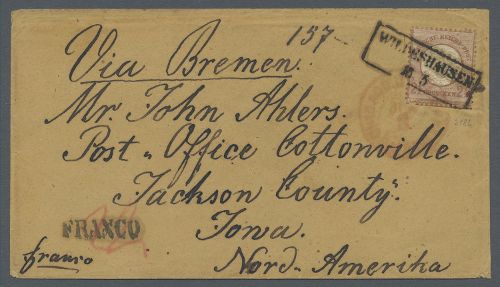 157
Via Bremen.
WILDESHAUSEN
16 5
Mr. John Ahlers.
Post „ Office Cottonville.
Jackson County.
FRANCO
Iowa.
franco
Nord-Amerika